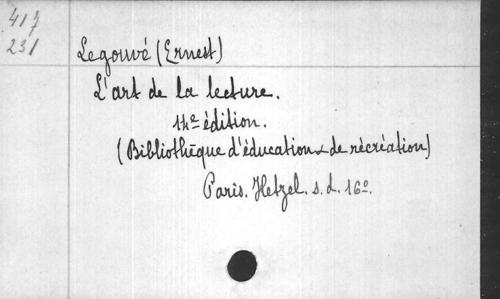 417
231
Legouvé (Ernest)
L'art de la lecture.
14e édition.
(Bibliothèque d'éducation & de récréation)
Paris. Hetzel. s. d. 16º.